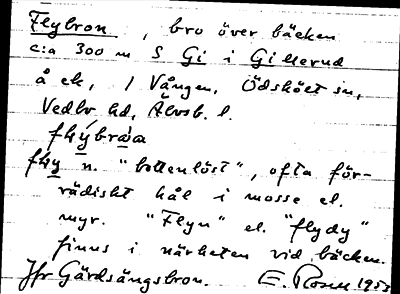 Flybron, bro över bäcken
c:a 300 m S Gi i Gillerud
å ek, / Vången, Ödskölt sn,
Vedbo hd, Älvsb. l.
flýbròa
flý n. "bottenlöst", ofta för-
rädiskt hål i mosse el.
myr. "Flyn" el. "flydy"
finns i närheten vid bäcken.
Jfr Gärdsängsbron. E. Rosell 1953